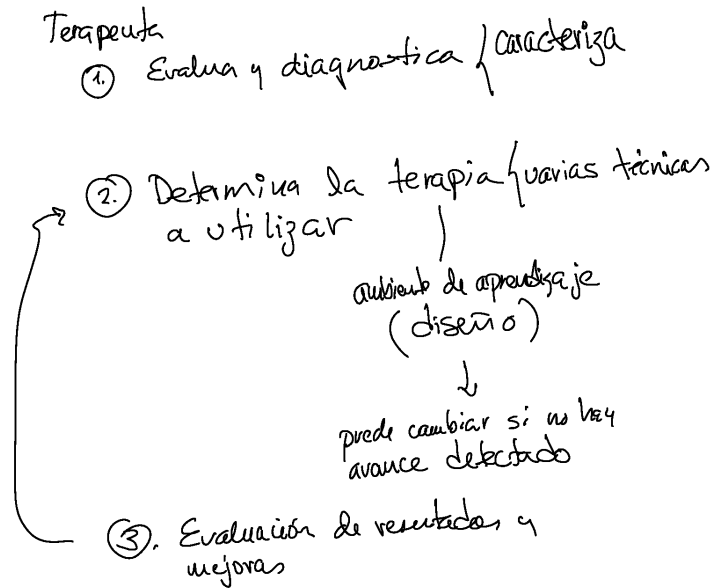 Terapeuta
1. Evalua y diagnostica { caracteriza
2. Determina la terapia { varias técnicas
a utilizar
ambiente de aprendizaje
(diseño)
puede cambiar si no hay
avance detectado
3. Evaluación de resultados y
mejoras